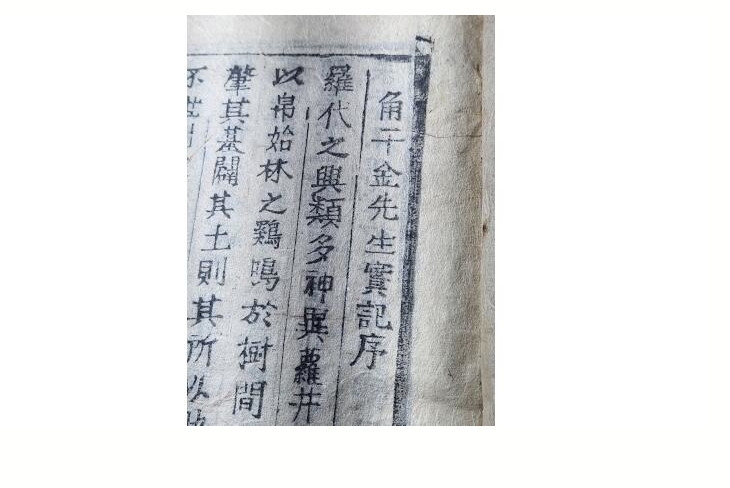 角干金先生實記序
羅代之興類多神異蘿井
以帛始林之鷄鳴於樹間
肇其基闢其土則其所以
不世